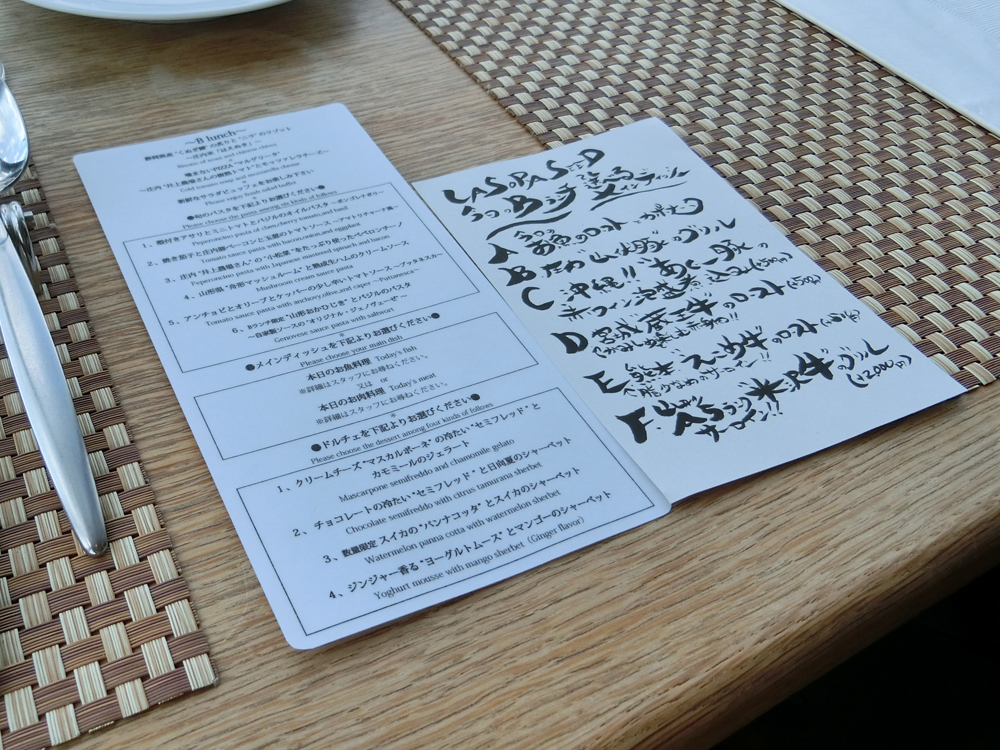 ~B lunch~
~庄内米"はえぬき"~
噛まないPIZZA"マルゲリータ"
~庄内"井上農場さんの樹熟トマト"とモッツァレラチーズ~
Cold tomato soup and mozzarella cheese
新鮮なサラダビュッフェをお楽しみ下さい
Please enjoy fresh salad buffet
●旬のパスタを下記よりお選びください●
Please choose the pasta among six kinds of follows
1、殻付きアサリとミニトマトとバジルのオイルパスタ ~ボンゴレナポリ~
Peperoncino pasta of cherryberry tomato and basil
2、焼き茄子と庄内豚ベーコンと玉葱のトマトソース ~アマトリチャーナ風~
Tomato sauce pasta with bacon,onion and eggplant
3、庄内"井上農場さん"の"小松菜"をたっぷり使ったペペロンチーノ
Peperoncino pasta with Japanese mustard spinach and bacon
4、山形県"舟形マッシュルーム"と熟成生ハムのクリームソース
Mushroom cream sauce pasta
5、アンチョビとオリーブとケッパーの少し辛いトマトソース ~プッタネスカ~
Tomato sauce pasta with anchovy,olive and caper ~Puttanesca~
6、Bランチ限定"山形おかひじき"とバジルのパスタ
~自家製ソースの"オリジナル・ジェノヴェーゼ"~
Genovese sauce pasta with saltwort
●メインディッシュを下記よりお選びください●
Please choose your main dish
本日のお魚料理 Today's fish
※詳細はスタッフにお尋ねください。
又は or
本日のお肉料理 Today's meat
※詳細はスタッフにお尋ねください。
●ドルチェを下記よりお選びください●
Please choose the dessert among four kinds of follows
1、クリームチーズ"マスカルポーネ"の冷たい"セミフレッド"と
カモミールのジェラート
Mascarpone semifreddo and chamomile gelato
2、チョコレートの冷たい"セミフレッド"と日向夏のシャーベット
Chocolate semifreddo with citrus tamurana sherbet
3、数量限定 スイカの"パンナコッタ"とスイカのシャーベット
Watermelon panna cotta with watermelon sherbet
4、ジンジャー香る"ヨーグルトムース"とマンゴーのシャーベット
Yoghurt mousse with mango sherbet (Ginger flavor)
LASOPASEED
Bランチ 選べる
メインディッシュ
A お魚のロースト
B 庄内 山伏豚のグリル
C 沖縄!! あぐー豚の
赤ワイン
D 宮城 蔵王牛のロースト
E
のロースト
サーロイン!!
F A5ランク 米沢牛のグリル
サーロイン!! (+2,000円)